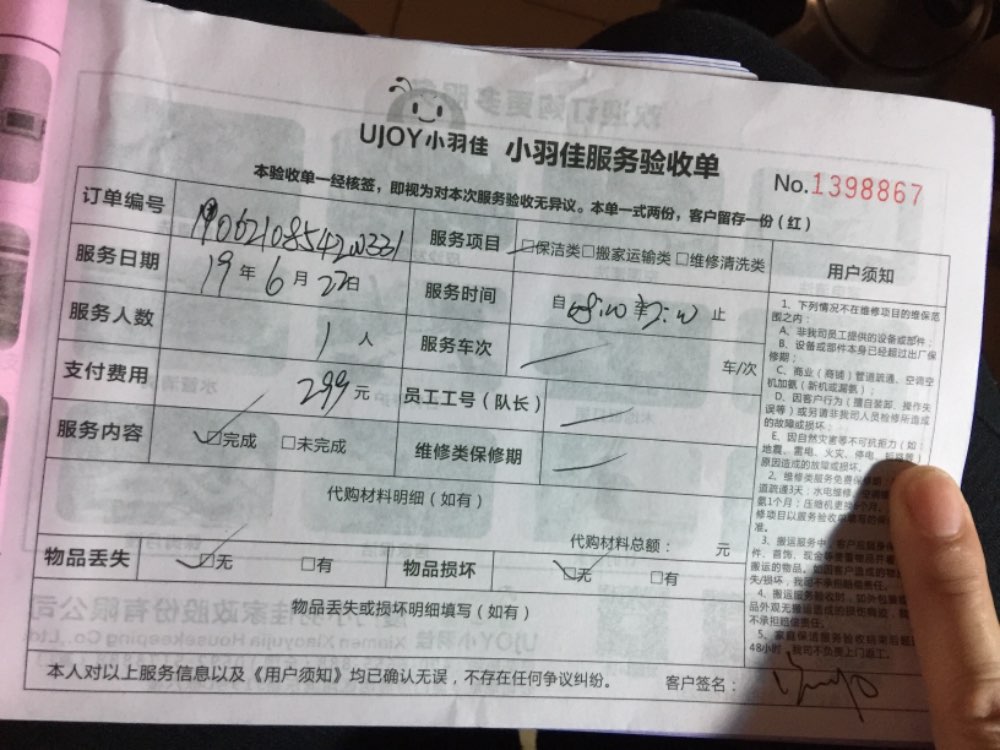 UJOY小羽佳 小羽佳服务验收单
No.1398867
本验收单一经核签，即视为对本次服务验收无异议。本单一式两份，客户留存一份（红）
订单编号
服务项目 □保洁类□搬家运输类□维修清洗类
用户须知
服务日期 19年6月22日
服务时间 自 止
服务人数 1人
服务车次 车/次
支付费用 299元
员工工号（队长）
服务内容 □完成 □未完成
维修类保修期
代购材料明细（如有）
代购材料总额： 元
物品丢失 □无 □有
物品损坏 □无 □有
物品丢失或损坏明细填写（如有）
本人对以上服务信息以及《用户须知》均已确认无误，不存在任何争议纠纷。
客户签名：
1、下列情况不在维修项目的维保范
围之内：
A、非我司员工提供的设备或部件；
B、设备或部件本身已经超过出厂保
修期；
C、商业（商铺）管道疏通、空调空
机加氨（新机或漏氨）；
D、因客户行为（擅自装卸、操作失
误等）或另请非我司人员检修所造成
的故障或损坏；
E、因自然灾害等不可抗拒力（如：
地震、雷电、火灾、停电
原因造成的故障或损坏。
2、维修类服务免费保修期
道疏通3天；水电维修
氨1个月；压缩机更换
修项目以置务验收单
准。
3、搬运服务中，客户应
件、首饰、现金等
搬运的物品。如因客户造成的物
失/损坏，我司不承担赔偿责任。
4、搬运服务验收时，如外包装
品外观无搬运造成的损伤痕迹，我
不承担赔偿责任。
5、家庭保洁服务验收结束后超
48小时，我司不负责上门返工。